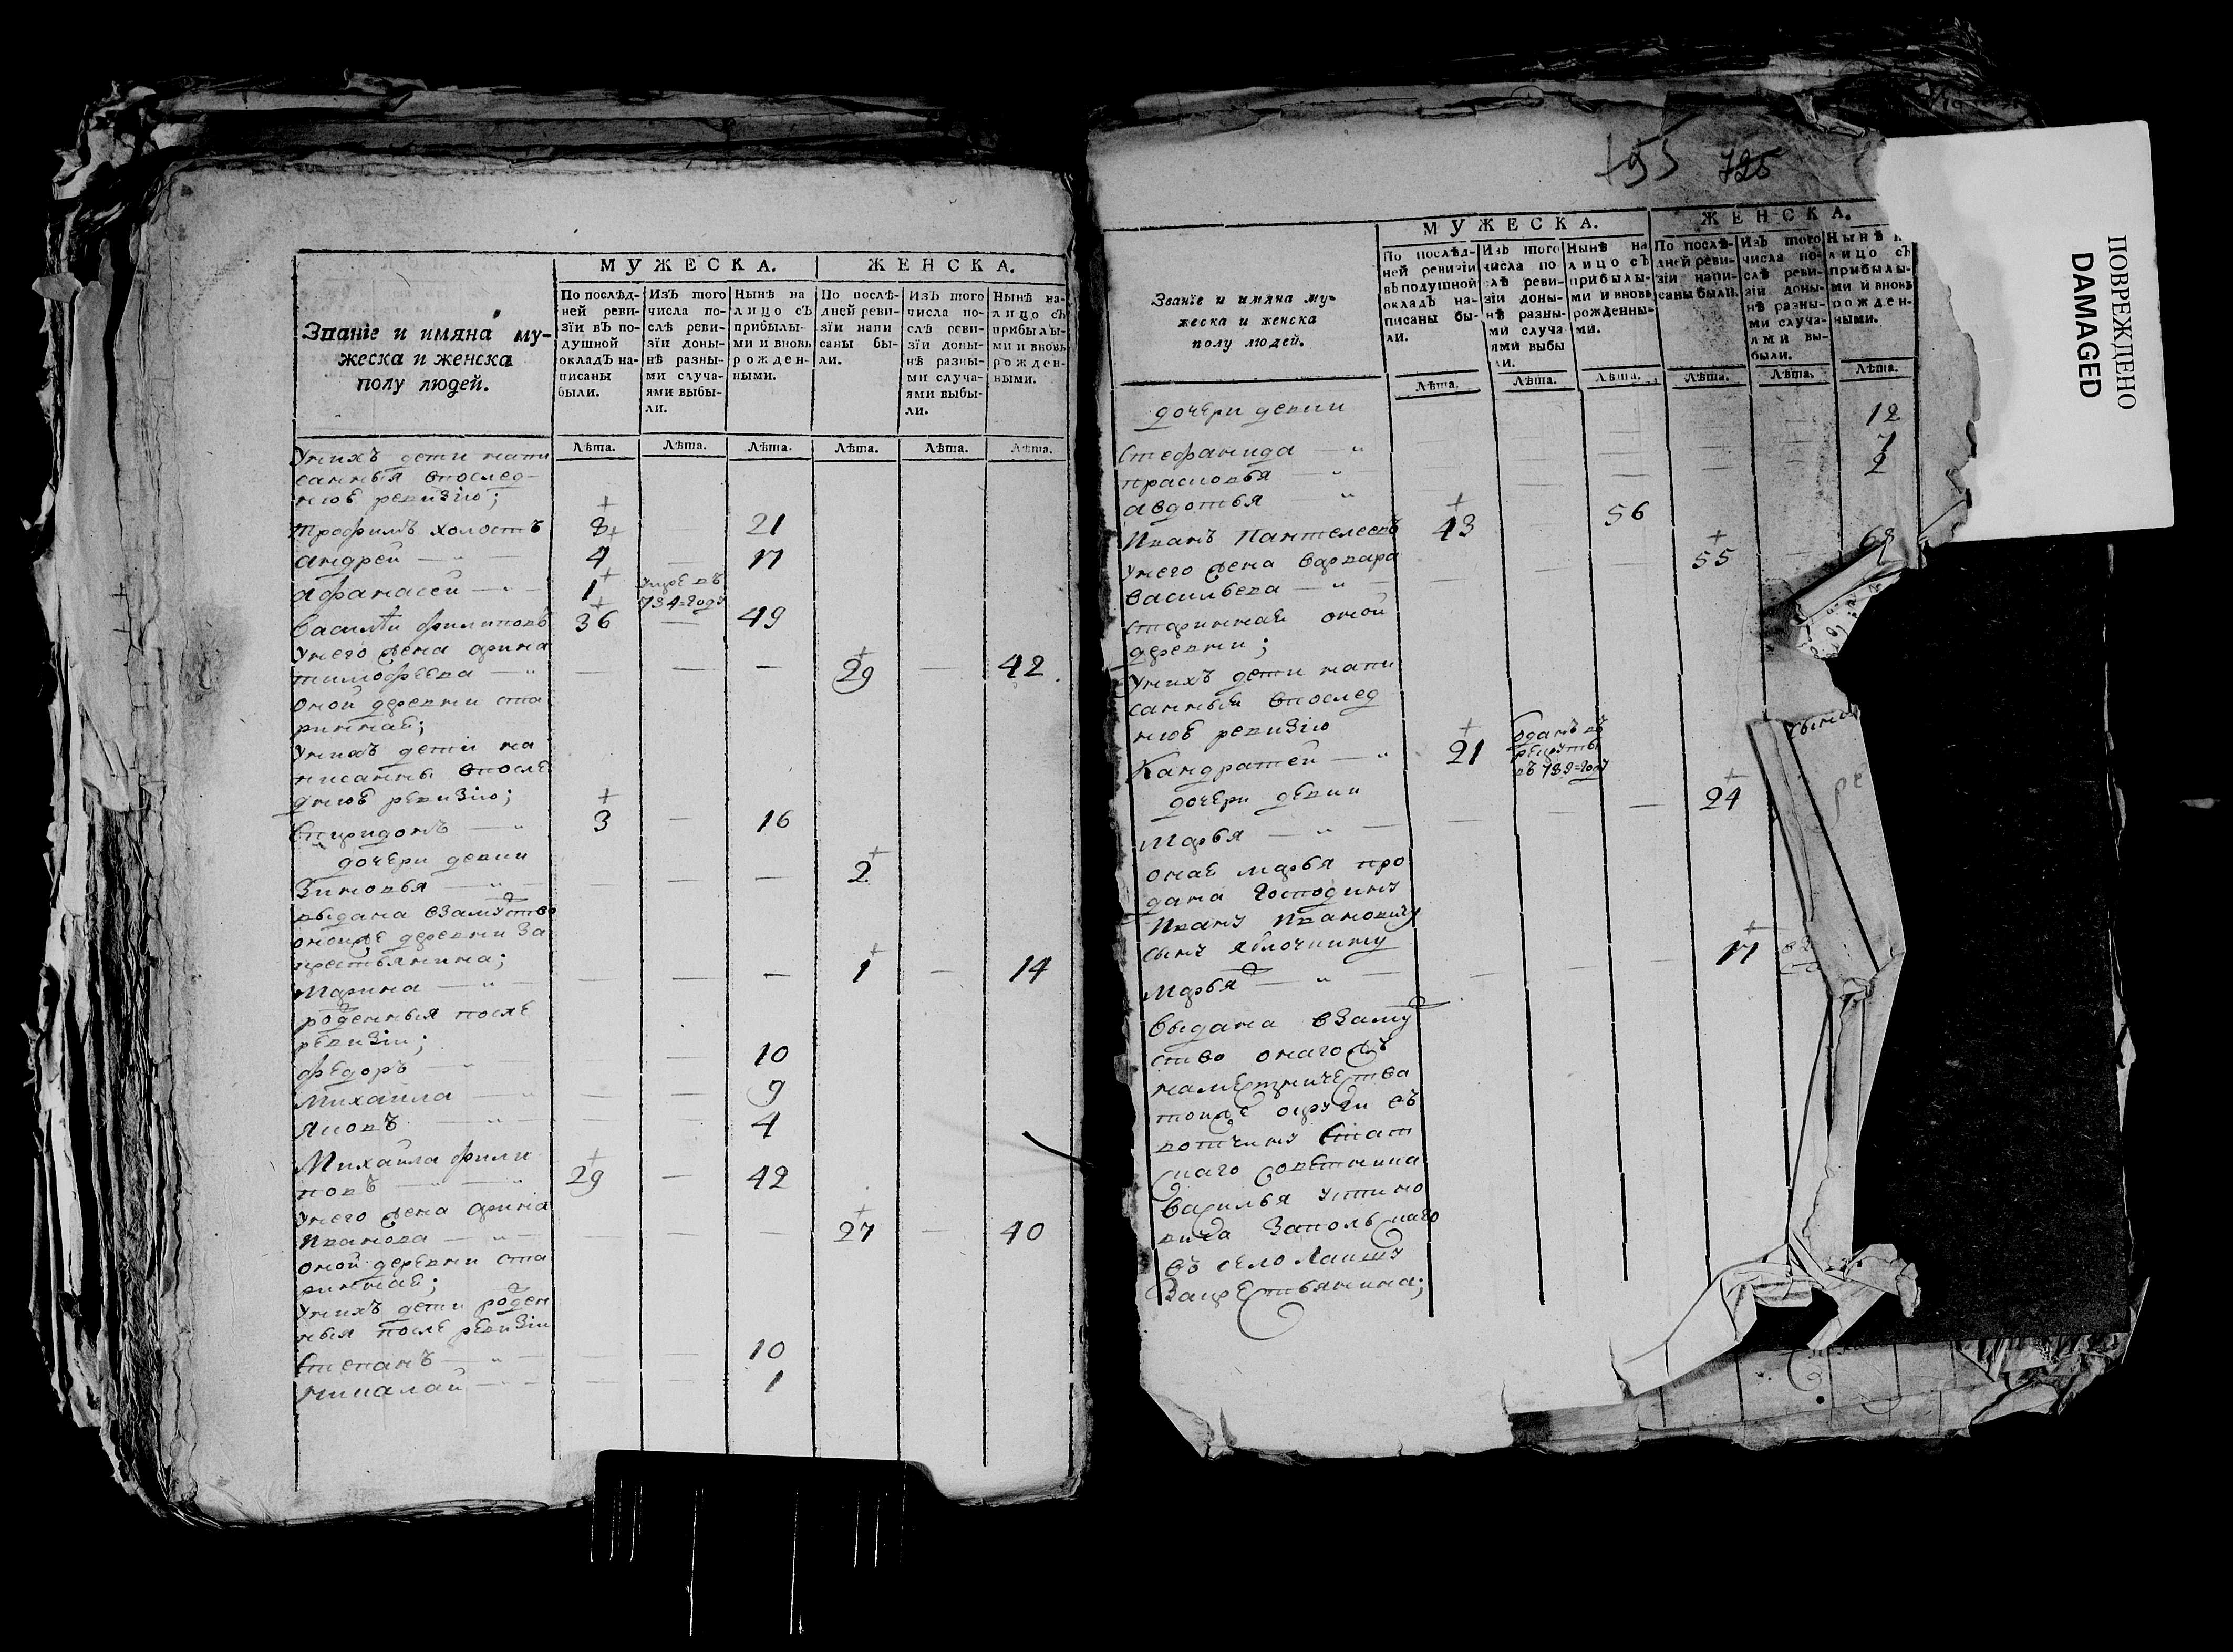 МУЖЕСКА. ЖЕНСКА.
Званїе и имяна му-
жеска и женска
полу людей.
По послѣд-
ней реви-
зїи въ по-
душной
окладъ на-
писаны
были.
Изъ того
числа по-
слѣ реви-
зїи доны-
нѣ разны-
ми случа-
ями выбы-
ли.
Нынѣ на
лицо съ
прибылы-
ми и вновь
рожден-
ными.
По послѣ-
дней реви-
зїи напи
саны бы-
ли.
Изъ того
числа по-
слѣ реви-
зїи доны-
нѣ разны-
ми случа-
ями выбы-
ли.
Нынѣ на-
лицо съ
прибылы-
ми и вновь
рожден-
ными.
Лѣта. Лѣта. Лѣта. Лѣта. Лѣта. Лѣта.
Унихъ дети напи
санныя впослед-
нюю ревизїю;
Трофимъ холостъ 8 21
андрей — " — 4 — 17
афанасей — " — 1 умре въ
784=году
Василѣи филиповъ 36 — 49
Унего жена арина
тимофеева — " — — — 29 — 42
оной деревни ста
ринная;
Унихъ дети на
писанны впосле
днюю ревизїю;
Спиридонъ — " 3 — 16
дочери девки
Зиновья — " — — — — 2
выдана взамужство
оноиже деревни за
крестьянина;
Марина — " — — — — 1 — 14
рожденныя после
ревизїи;
федоръ — " — — 10
Михаила — " — — 9
Яковъ — " — — 4
Михаила фили
повъ — " — " 29 — 42
Унего жена арина
Иванова — " — — — — 27 — 40
оной деревни ста
ринная;
Унихъ дети рожден
ныя после ревизїи
Степанъ — " — — — 10
николай — " — — — 1
725
МУЖЕСКА. ЖЕНСКА.
Званїе и имяна му-
жеска и женска
полу людей.
По послѣд-
ней ревизїи
въ подушной
окладъ на-
писаны бы-
ли.
Изъ того
числа по
слѣ реви-
зїи доны-
нѣ разны-
ми случа
ями выбы
ли.
Нынѣ на
лицо съ
прибылы-
ми и вновь
рожденны-
ми.
По послѣ-
дней реви-
зїи напи-
саны были.
Изъ того
числа по-
слѣ реви-
зїи доны-
нѣ разны-
ми случа-
ями вы-
были.
Нынѣ
лицо съ
прибылы-
ми и вновь
рожден-
ными.
Лѣта. Лѣта. Лѣта. Лѣта. Лѣта. Лѣта.
дочери девки
Стефанида — " 12
прасковья — " 7
авдотья — " 2
Иванъ Пантелеевъ 43 — 56
Унего жена варвара
васильева — " — — — 55 — 68
старинная оной
деревни;
Унихъ дети напи
санныи впослед
нюю ревизїю
Кандратей — " 21 Отданъ въ
рекруты
въ 788=году
дочери девки
Марья — " — — — — 24
оная марья про
дана Господину
Ивану Ивановичу
сыну Яблочкину
Марья — " — — — — 17
выдана взамуж
ство онагожъ
наместничества
тоиже округи въ
вотчину Стат
скаго советника
Василья устино
вича Запольскаго
въ село Лаишу
Закрестьянина;
ПОВРЕЖДЕНО
DAMAGED